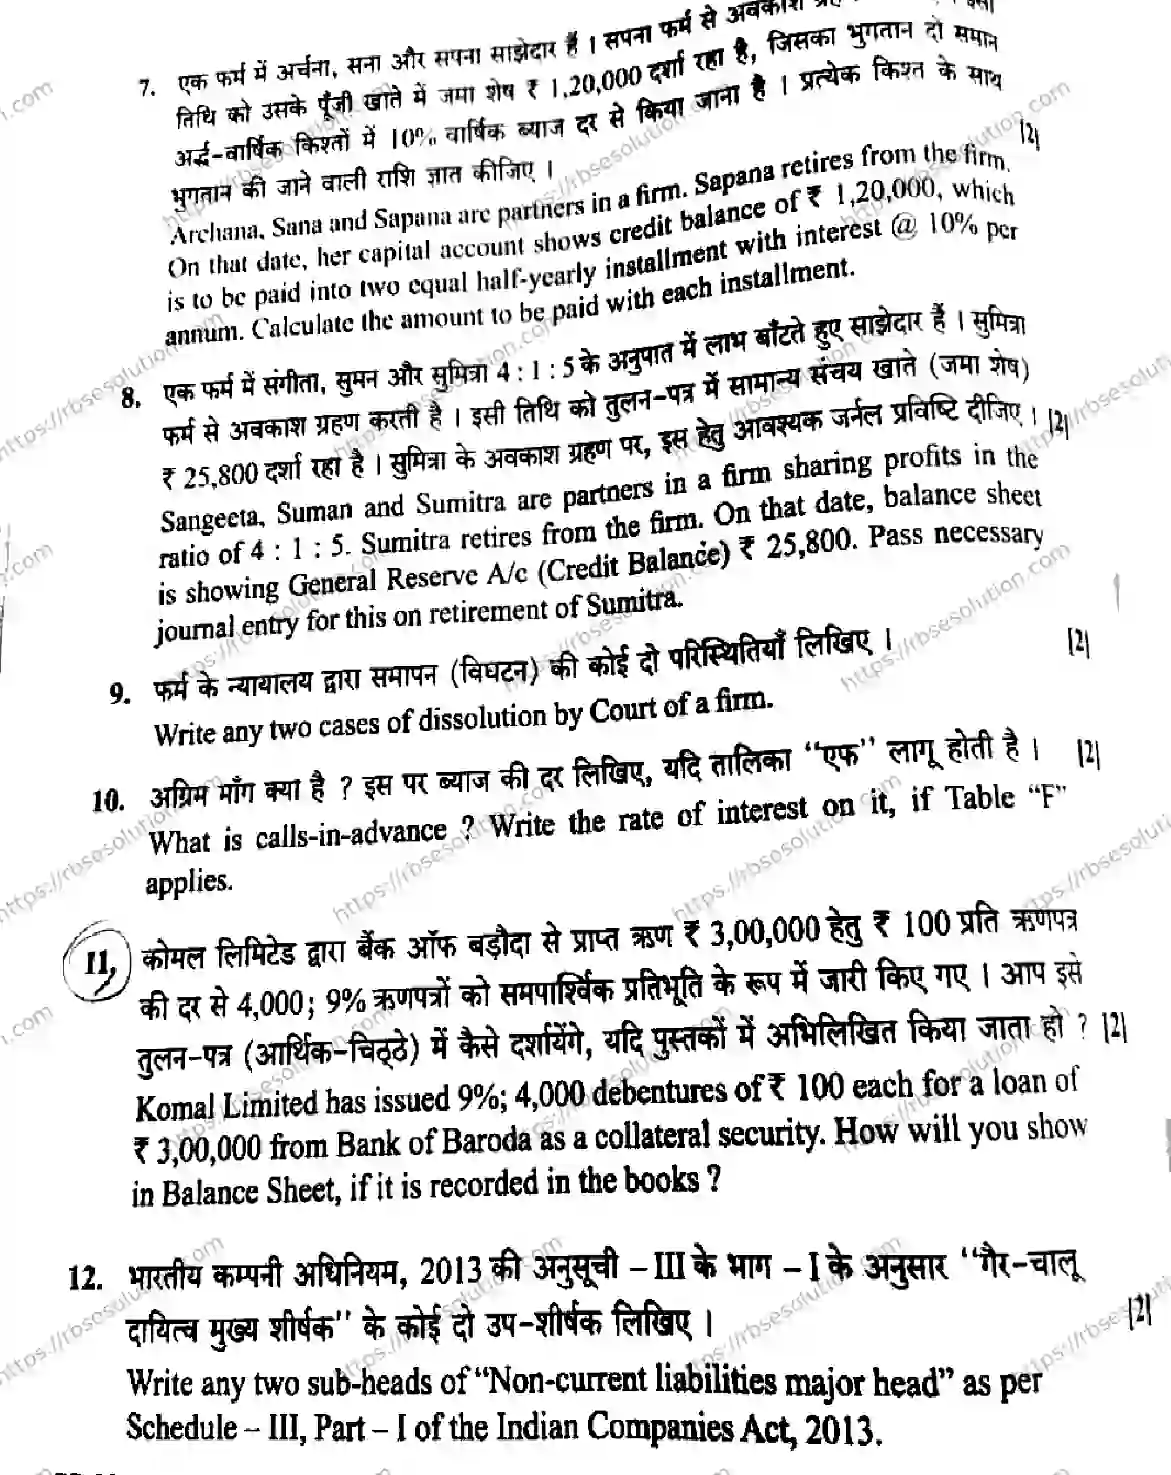 7. एक फर्म में अर्चना, सना और सपना साझेदार हैं । सपना फर्म से अवकाश
तिथि को उसके पूँजी खाते में जमा शेष ₹ 1,20,000 दर्शा रहा है, जिसका भुगतान दो समान
अर्द्ध-वार्षिक किश्तों में 10% वार्षिक ब्याज दर से किया जाना है । प्रत्येक किश्त के साथ
भुगतान की जाने वाली राशि ज्ञात कीजिए । |2|
Archana, Sana and Sapana are partners in a firm. Sapana retires from the firm.
On that date, her capital account shows credit balance of ₹ 1,20,000, which
is to be paid into two equal half-yearly installment with interest @ 10% per
annum. Calculate the amount to be paid with each installment.
8. एक फर्म में संगीता, सुमन और सुमित्रा 4 : 1 : 5 के अनुपात में लाभ बाँटते हुए साझेदार हैं । सुमित्रा
फर्म से अवकाश ग्रहण करती है । इसी तिथि को तुलन-पत्र में सामान्य संचय खाते (जमा शेष)
₹ 25,800 दर्शा रहा है । सुमित्रा के अवकाश ग्रहण पर, इस हेतु आवश्यक जर्नल प्रविष्टि दीजिए । |2|
Sangeeta, Suman and Sumitra are partners in a firm sharing profits in the
ratio of 4 : 1 : 5. Sumitra retires from the firm. On that date, balance sheet
is showing General Reserve A/c (Credit Balance) ₹ 25,800. Pass necessary
journal entry for this on retirement of Sumitra.
9. फर्म के न्यायालय द्वारा समापन (विघटन) की कोई दो परिस्थितियाँ लिखिए । |2|
Write any two cases of dissolution by Court of a firm.
10. अग्रिम माँग क्या है ? इस पर ब्याज की दर लिखिए, यदि तालिका “एफ” लागू होती है । |2|
What is calls-in-advance ? Write the rate of interest on it, if Table “F”
applies.
11, कोमल लिमिटेड द्वारा बैंक ऑफ बड़ौदा से प्राप्त ऋण ₹ 3,00,000 हेतु ₹ 100 प्रति ऋणपत्र
की दर से 4,000; 9% ऋणपत्रों को समपार्श्विक प्रतिभूति के रूप में जारी किए गए । आप इसे
तुलन-पत्र (आर्थिक-चिठ्ठे) में कैसे दर्शायेंगे, यदि पुस्तकों में अभिलिखित किया जाता हो ? |2|
Komal Limited has issued 9%; 4,000 debentures of ₹ 100 each for a loan of
₹ 3,00,000 from Bank of Baroda as a collateral security. How will you show
in Balance Sheet, if it is recorded in the books ?
12. भारतीय कम्पनी अधिनियम, 2013 की अनुसूची – III के भाग – I के अनुसार “गैर-चालू
दायित्व मुख्य शीर्षक” के कोई दो उप-शीर्षक लिखिए । |2|
Write any two sub-heads of “Non-current liabilities major head” as per
Schedule – III, Part – I of the Indian Companies Act, 2013.
https://rbsesolution.com